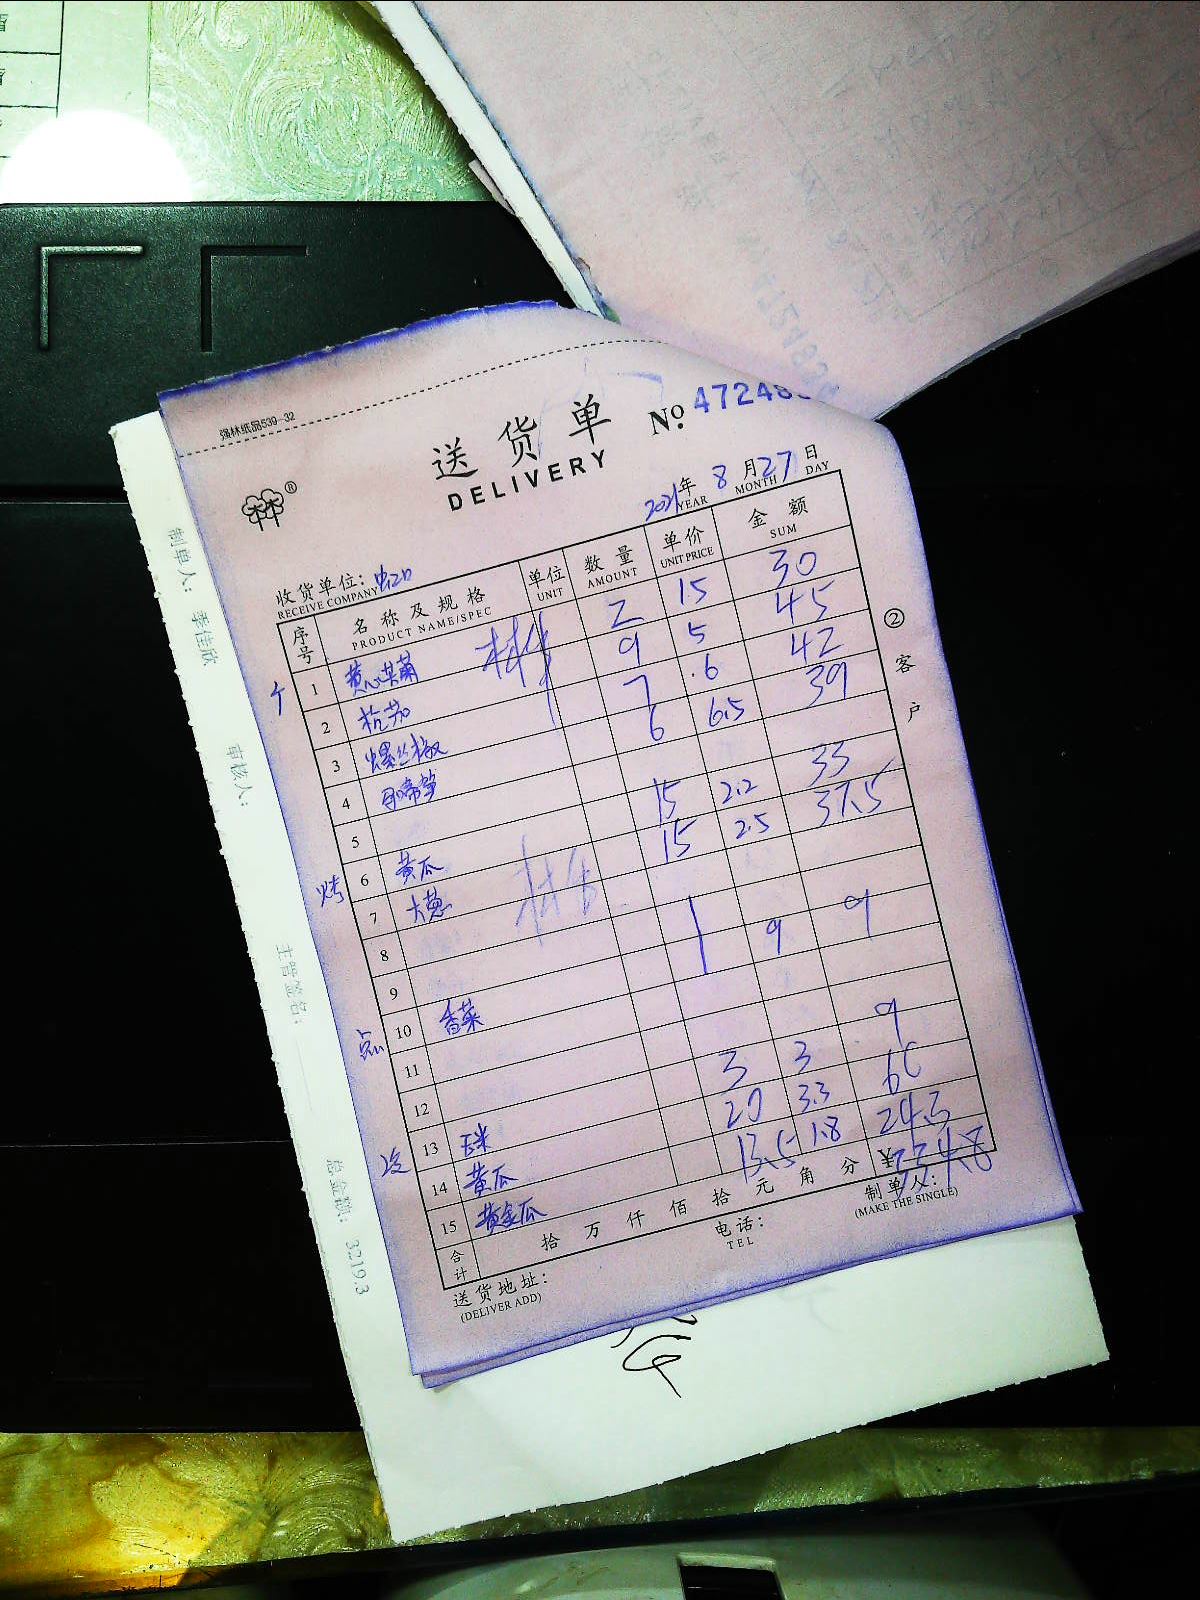 强林纸品539-32
送货单
DELIVERY
№ 47248
2021年 8月27日
YEAR MONTH DAY
收货单位:
RECEIVE COMPANY
序号 名称及规格 单位 数量 单价 金额
PRODUCT NAME/SPEC UNIT AMOUNT UNIT PRICE SUM
1 黄心菜 2 15 30
2 杭茄 9 5 45
3 螺丝椒 7 6 42
4 6 6.5 39
5
6 黄瓜 15 2.2 33
7 大葱 15 2.5 37.5
8
9
10 香菜 1 9 9
11
12
13 玉米 3 3 9
14 黄瓜 20 3.3 66
15 黄金瓜 13.5 1.8 24.3
合计 拾 万 仟 佰 拾 元 角 分 ¥334.8
送货地址:
(DELIVER ADD)
电话:
TEL
制单人:
(MAKE THE SINGLE)
②客户
烤
制单人: 季佳欣
审核人:
主管签名:
总金额: 3219.3